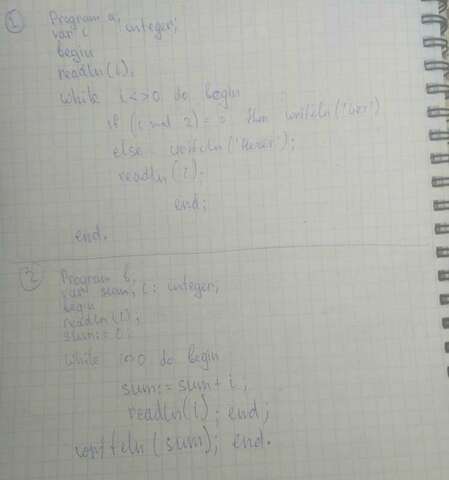 1
Program a,
var i integer;
begin
readln(i);
while i<>0 do begin
if (i mod 2)=0 then writeln('
else writeln('
readln(i);
end;
end.
2
Program b,
var sum, i: integer;
begin
readln(i);
sum:=
while i<>0 do begin
sum:=sum+i;
readln(i); end;
writeln(sum); end.